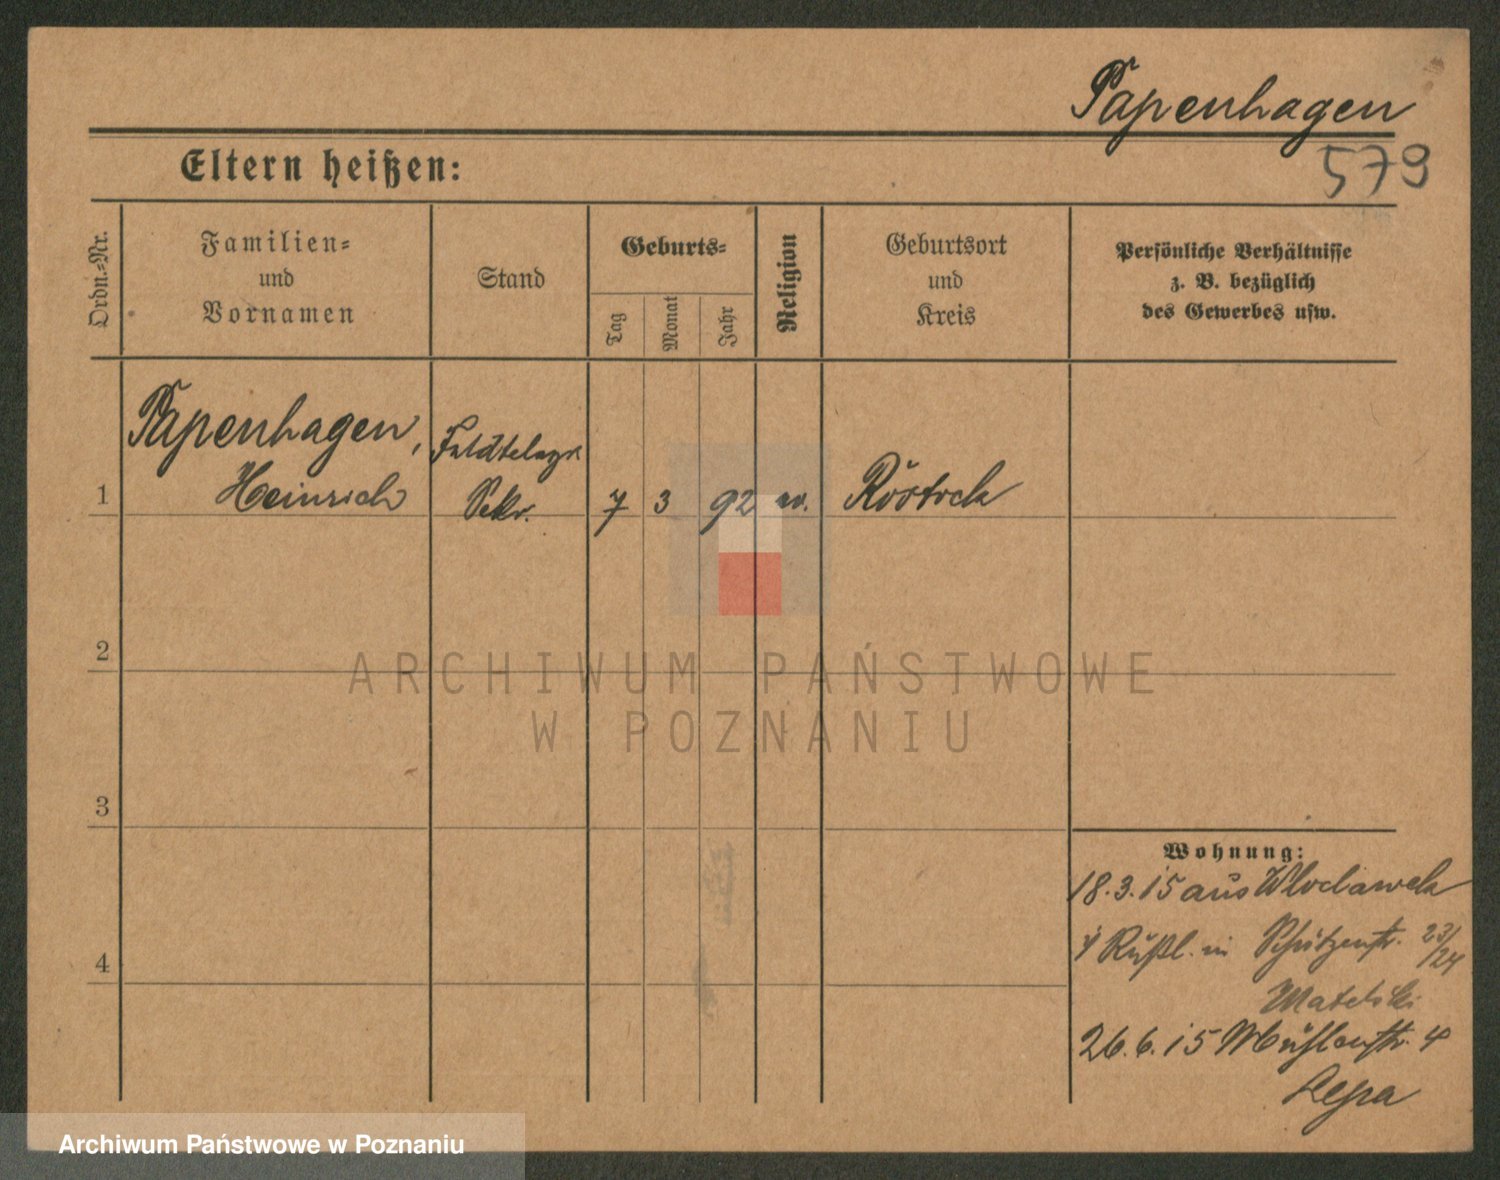 Papenhagen
579
Eltern heißen:
Ordn.-Nr.
Familien-
und
Vornamen
Stand
Geburts-
Tag
Monat
Jahr
Religion
Geburtsort
und
Kreis
Persönliche Verhältnisse
z. B. bezüglich
des Gewerbes usw.
1
Papenhagen,
Heinrich
Feldtelegr.
Sekr.
7 3 92 ev. Rostock
2
ARCHIWUM PAŃSTWOWE
W POZNANIU
3
Wohnung:
18.3.15 aus Wloclawek
Rußl. in Schützenstr. 23/24
4
Matelski
26.6.15 Mühlenstr. 4
Archiwum Państwowe w Poznaniu